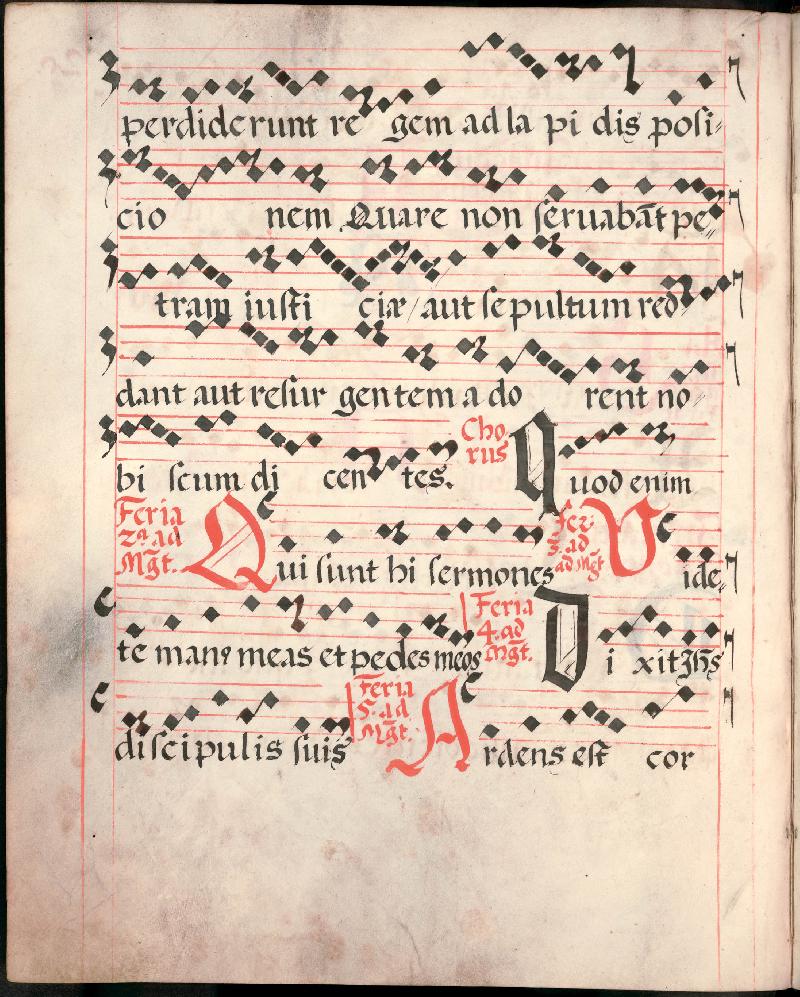 perdiderunt re gem ad la pi dis posi⸗
cio nem Quare non seruabāt pe⸗
tram iusti ciæ / aut sepultum red⸗
dant aut resur gentem a do rent no⸗
bi scum di cen tes. Cho rus Quod enim
Feria 2ª ad Mḡt. Qui sunt hi sermones Fer 3. ad ad Mḡt Vide⸗
te manꝰ meas et pedes meos Feria 4. ad Mḡt. Di xit Jh̄s
discipulis suis Feria 5. ad Mḡt. Ardens est cor